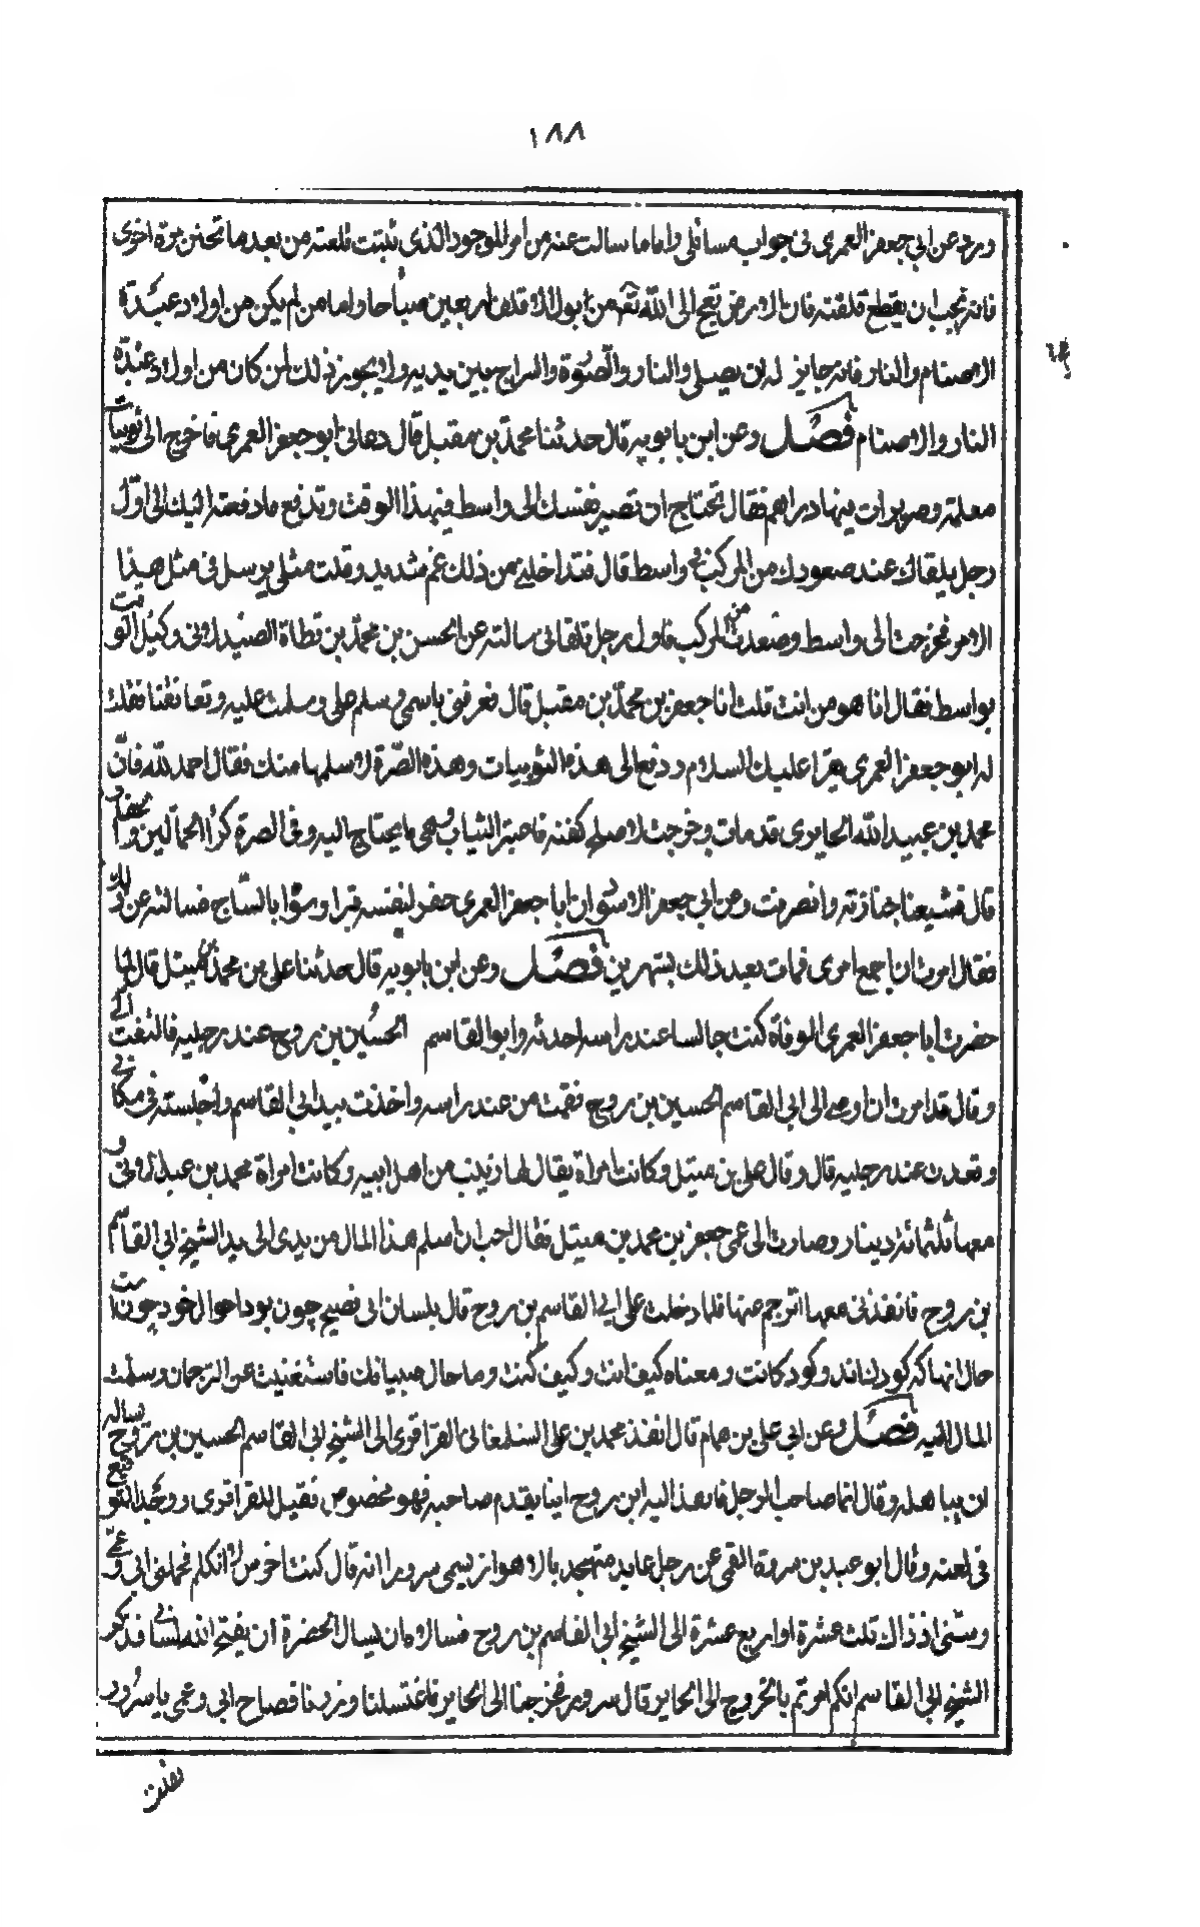 ١٨٨
وبرد عن ابي جعفر العمري في جواب مسائلي واما ما سالت عنه من امر المولود الذي ثبتت قلفته من بعد ما تختن مرة اخرى
فانه يجب ان يقطع قلفته فان الارض تعج الى الله تعـ من ابوال الاقلف اربعين صباحا واما من لم يكن من اولاد عبدة
الاصنام والنار فانه جايز له ان يصلي والنار والصورة والسراج بين يديه ولا يجوز ذلك لمن كان من اولاد عبدة
النار والاصنام فصل وعن ابن بابويه قال حدثنا محمد بن مقبل قال دعاني ابو جعفر العمري فاخرج الى ثوبيات
معلمة وصويرات فيها دراهم فقال تحتاج ان تصير بنفسك الى واسط في هذا الوقت وتدفع ما دفعته اليك الى اول
رجل يلقاك عند صعودك من المركب في واسط قال فتداخلني من ذلك غم شديد وقلت مثلي يرسل في مثل هذا
الامر فخرجت الى واسط وصعدت من المركب فاول رجل تلقاني سالته عن الحسن بن محمد بن قطاة الصيدلاني وكيل الوقت
بواسط فقال انا هو من انت قلت انا جعفر بن محمد بن مقبل قال فعرفني باسمي وسلم علي وسلمت عليه وتعانقنا فقلت
له ابو جعفر العمري يقرا عليك السلام ودفع الى هذه الثوبيات وهذه الصرة لاسلمها منك فقال احمد لله فان
محمد بن عبيد الله الحايري قد مات وخرجت لاصلح كفنه فاحبة الثياب وهي ما يحتاج اليه وفي الصرة كرا الحمالين والحفار
قال فشيعنا جنازته وانصرفت وعن ابي جعفر الاسوان ابا جعفر العمري حفر لنفسه قبرا وسوا بالساج فسالته عن ذلك
فقال امرت ان اجمع امري فمات بعد ذلك بشهرين فصل وعن ابن بابويه قال حدثنا علي بن محمد بن متيل قال لما
حضرت ابا جعفر العمري الوفاة كنت جالسا عند راسه احدثه وابو القاسم الحسين بن روح عند رجليه فالتفت الي
وقال قد امرت ان اوصي الى ابي القاسم الحسين بن روح فقمت من عند راسه واخذت بيد ابي القاسم واجلسته في مكاني
وقعدت عند رجليه قال وقال علي بن متيل وكانت امراة يقال لها زينب من اهل ابيه وكانت امراة محمد بن عبدل وفي
معها ثلثمائة دينار وصارت الى عمي جعفر بن محمد بن متيل فقال احب ان اسلم هذا المال من يدي الى يد الشيخ ابي القاسم
بن روح فانفذني معها اترجم عنها فلما دخلت على ابي القاسم بن روح قال بلسان ابي فصيح چون بود احوال خود چون است
حال انها كه كودك اند وكود كانت ومعناه كيف انت وكيف كنت وما حال صبيانك فاستغنيت عن الترجمان وسلمت
المال اليه فصل وعن ابي علي بن همام قال انفذ محمد بن علي السلمغاني العزاقري الى الشيخ ابي القاسم الحسين بن روح يساله
ان يباهله وقال انما صاحب الرجل فانفذ اليه ابن روح اينا يقدم صاحبه فهو مخصوص فقيل للقراقري ووجد التوقيع
في لعنه وقال ابو عبد بن سورة القمي عن رجل عابد متهجد بالاهواز يسمى سرورا انه قال كنت اخرس لا اتكلم فحملني ابي وعمي
وسني اذ ذاك ثلث عشرة او اربع عشرة الى الشيخ ابي القاسم بن روح فسالاه ان يسال الحضرة ان يفتح الله لساني فذكر
الشيخ ابي القاسم انكم امرتم بالخروج الى الحاير قال سرور فخرجنا الى الحاير فاغتسلنا وزرنا فصاح ابي وعمي يا سرور
فقلت